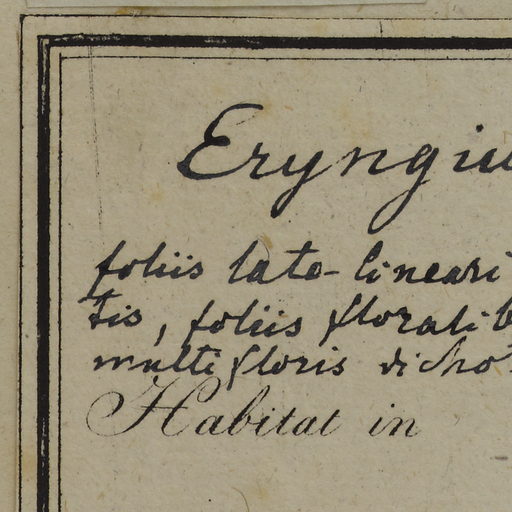 Eryngiu
foliis lato-lineari
tis, foliis floralib
multifloris dicho
Habitat in